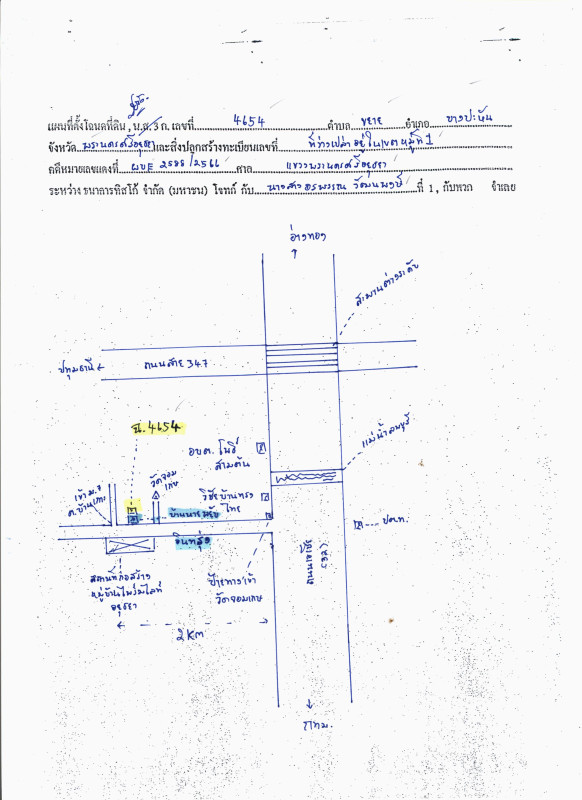 แผนที่ตั้งโฉนดที่ดิน, น.ส. 3 ก. เลขที่ 4654 ตำบล ขยาย อำเภอ บางปะหัน
จังหวัด พระนครศรีอยุธยา และสิ่งปลูกสร้างทะเบียนเลขที่ ที่ว่างเปล่า อยู่ในเขตหมู่ที่ 1
คดีหมายเลขแดงที่ ผบE 2588/2566 ศาล แขวงพระนครศรีอยุธยา
ระหว่าง ธนาคารทิสโก้ จำกัด (มหาชน) โจทก์ กับ นางสาวอรพรรณ วัฒนพงษ์ ที่ 1, กับพวก จำเลย
อ่างทอง
สะพานต่างระดับ
ปทุมธานี
ถนนสาย 347
ฉ. 4654
อบต. โพธิ์
สามต้น
แม่น้ำลพบุรี
เข้า ม. 7
วัดจอม
เกษ
วิชัย บ้านทรง
ไทย
บ้านนาย
ปตท.
สถานที่ก่อสร้าง
หมู่บ้าน
อยุธยา
ป้ายทางเข้า
วัดจอมเกษ
ถนนเอเชีย
2 KM
กทม.